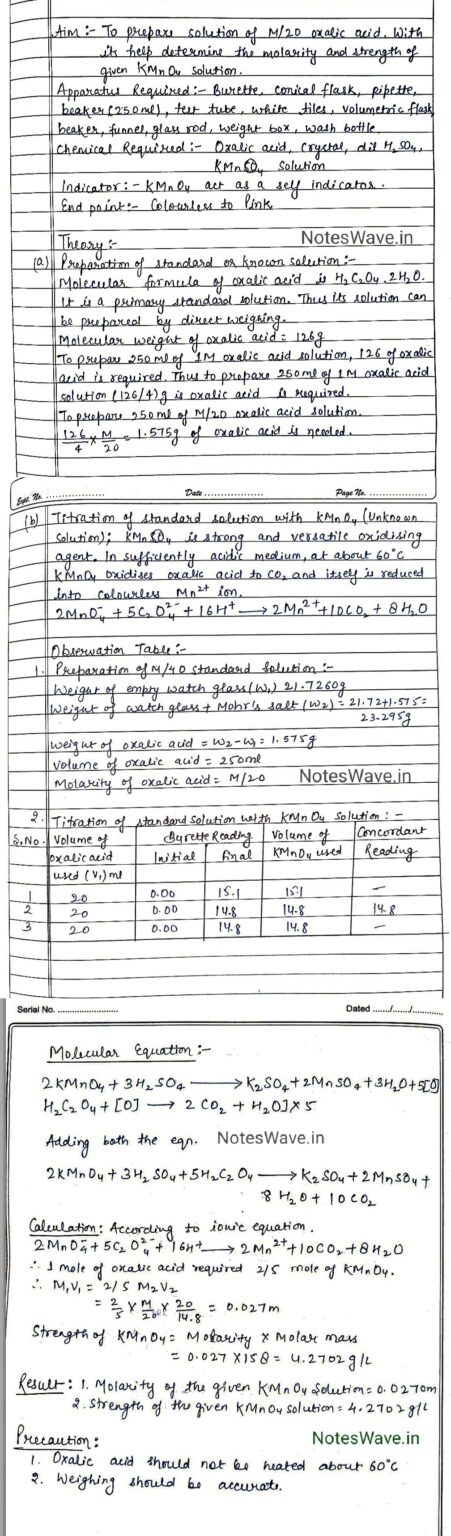 Aim :- To prepare solution of M/20 oxalic acid. With
its help determine the molarity and strength of
given KMnO4 solution.
Apparatus Required :- Burette, conical flask, pipette,
beaker (250ml), test tube, white tiles, volumetric flask
beaker, funnel, glass rod, weight box, wash bottle.
Chemical Required :- Oxalic acid, Crystal, dil H2SO4,
KMnO4 solution
Indicator :- KMnO4 act as a self indicator.
End point :- Colourless to Pink
NotesWave.in
Theory :-
(a) Preparation of standard or known solution :-
Molecular formula of oxalic acid is H2C2O4.2H2O.
It is a primary standard solution. Thus its solution can
be prepared by direct weighing.
Molecular weight of oxalic acid = 126g
To prepare 250ml of 1M oxalic acid solution, 126 of oxalic
acid is required. Thus to prepare 250ml of 1M oxalic acid
solution (126/4)g is oxalic acid is required.
To prepare 250ml of M/20 oxalic acid solution.
126/4 × M/20 = 1.575g of oxalic acid is needed.
Expt. No. ........................ Date ........................ Page No. ........................
(b) Titration of standard solution with KMnO4 (Unknown
solution); KMnO4 is strong and versatile oxidising
agent. In sufficiently acidic medium, at about 60°C
KMnO4 oxidises oxalic acid to CO2 and itself is reduced
into colourless Mn2+ ion.
2MnO4- + 5C2O4 2- + 16H+ → 2Mn2+ + 10CO2 + 8H2O
Observation Table :-
1. Preparation of M/40 standard solution :-
Weight of empty watch glass (W1) 21.7260g
Weight of watch glass + Mohr's salt (W2) = 21.72+1.575=
23.295g
Weight of oxalic acid = W2-W1 = 1.575g
Volume of oxalic acid = 250ml
Molarity of oxalic acid = M/20
NotesWave.in
2. Titration of standard solution with KMnO4 solution :-
S.No. Volume of oxalic acid used (V1) ml Burette Reading Initial Final Volume of KMnO4 used Concordant Reading
1 20 0.00 15.1 15.1 -
2 20 0.00 14.8 14.8 14.8
3 20 0.00 14.8 14.8 -
Serial No. ........................ Dated ......./......./............
Molecular Equation :-
2KMnO4 + 3H2SO4 → K2SO4 + 2MnSO4 + 3H2O + 5[O]
H2C2O4 + [O] → 2CO2 + H2O] × 5
Adding both the eqn. NotesWave.in
2KMnO4 + 3H2SO4 + 5H2C2O4 → K2SO4 + 2MnSO4 +
8H2O + 10CO2
Calculation : According to ionic equation.
2MnO4- + 5C2O4 2- + 16H+ → 2Mn2+ + 10CO2 + 8H2O
∴ 1 mole of oxalic acid required 2/5 mole of KMnO4.
∴ M1V1 = 2/5 M2V2
= 2/5 × M/20 × 20/14.8 = 0.027m
Strength of KMnO4 = Molarity × Molar mass
= 0.027 × 158 = 4.2702 g/L
Result : 1. Molarity of the given KMnO4 solution = 0.0270m
2. Strength of the given KMnO4 solution = 4.2702 g/L
Precaution :
NotesWave.in
1. Oxalic acid should not be heated about 60°C
2. Weighing should be accurate.